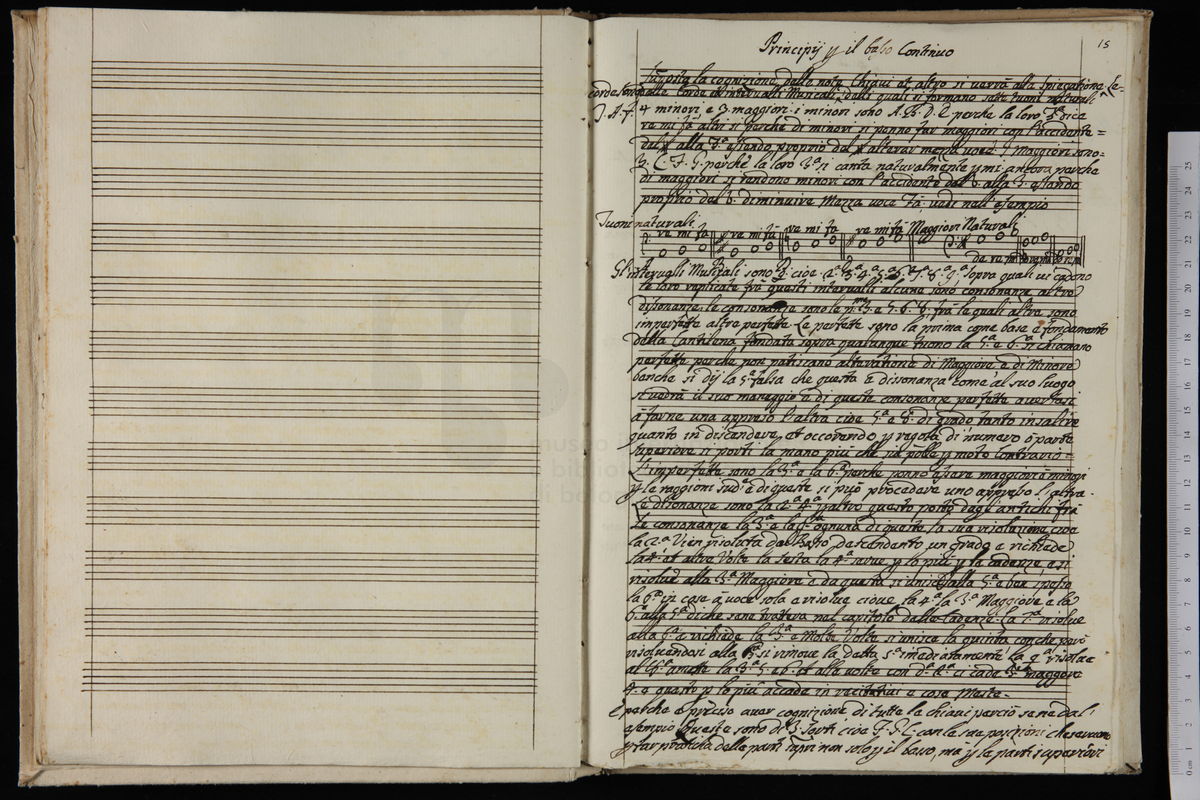 15
Principij p il baso Continuo
la cognizione delle note Chiavi et altro si verrà alla spiegatione
delle Corde et intervalli Musicali, dalli quali si formano sette tuoni naturali
4 minori e 3 maggiori i minori sono A. D. E perche la loro 3ª dice
re mi fà altri si perche di minori si ponno far maggiori con l'accidente
del # alla 3ª essendo proprio del # alterar mezza voce. I Maggiori sono
C. F. G. perche la loro 3ª si canta naturalmente p mi ancora perche
di maggiori si rendono minori con l'accidente del b alla 3ª essendo
proprio del b diminuire Mezza voce Fà: vedi nell'esempio
Tuoni naturali
re mi fa re mi fa re mi fa re mi fa Maggiori Naturali
do re mi
Gl'intervalli Musicali sono cioe 2ª 3ª 4ª 5ª 6ª 7ª 8ª 9ª sopra quali vi cadono
le loro replicate frà questi intervalli alcune sono consonanze altre
dissonanze, le consonanze sono le 3ª e 5. 6. 8. frà le quali altre sono
imperfette altre perfette Le perfette sono la prima come base e fondamento
della Cantilena fondata sopra qualunque tuono la 5ª e 8ª si chiamano
perfette perche non patiscano alteratione di Maggiore e di Minore
benche si dij la 5ª falsa che questa è dissonanza come al suo luogo
si vedrà il suo maneggio e di queste consonanze perfette avertasi
à farne una appresso l'altra cioe 5ª e 8ª di grado tanto in salire
quanto in discendere, et occorendo p regola di numero ò parte
superiore si porti la mano più che sà polle p moto Contrario
L'imperfette sono la 3ª e la 6ª perche ponno essere maggiori ò minori
p le raggioni sudª e di queste si può procedere uno appresso l'altra.
Le disonanze sono la 2ª 4ª p altro questo posto dagl'antichi frà
le consonanze la 7ª e la 9ª ognuna di queste la sua risoluzione cioe
la 2ª Vien risoluta dal Basso descendente un grado e richiede
la 4ª et altre Volte la sesta la 4ª serue p lo più p la cadenze e si
risolue alla 3ª Maggiore e da questa si unisce alla 5ª e ben spesso
la 6ª in cose à voce sola e risolue cioue la 4ª la 3ª Maggiore e la
6ª alla 5ª di che sene tratterà nel capitolo delle Cadenze. La 7ª risolue
alla 6ª e richiede la 3ª e Molte Volte si unisce la quinta con che però
risoluendosi alla 6ª si rimoue la detta 5ª immediatamente la 9ª risolue
al 8ª amette la 3ª 5. et alle volte con dª 2ª ci cade maggiore
4. e questo p lo più accade in recitativi e cose Meste.
E perche è preciso aver cognizione di tutte le chiavi perciò se ne da l'
esempio Queste sono di 3 sorti cioe F. G. C. con le sue posizioni che servono
p far pratica delle parti non solo p il basso, ma p le parti superiori